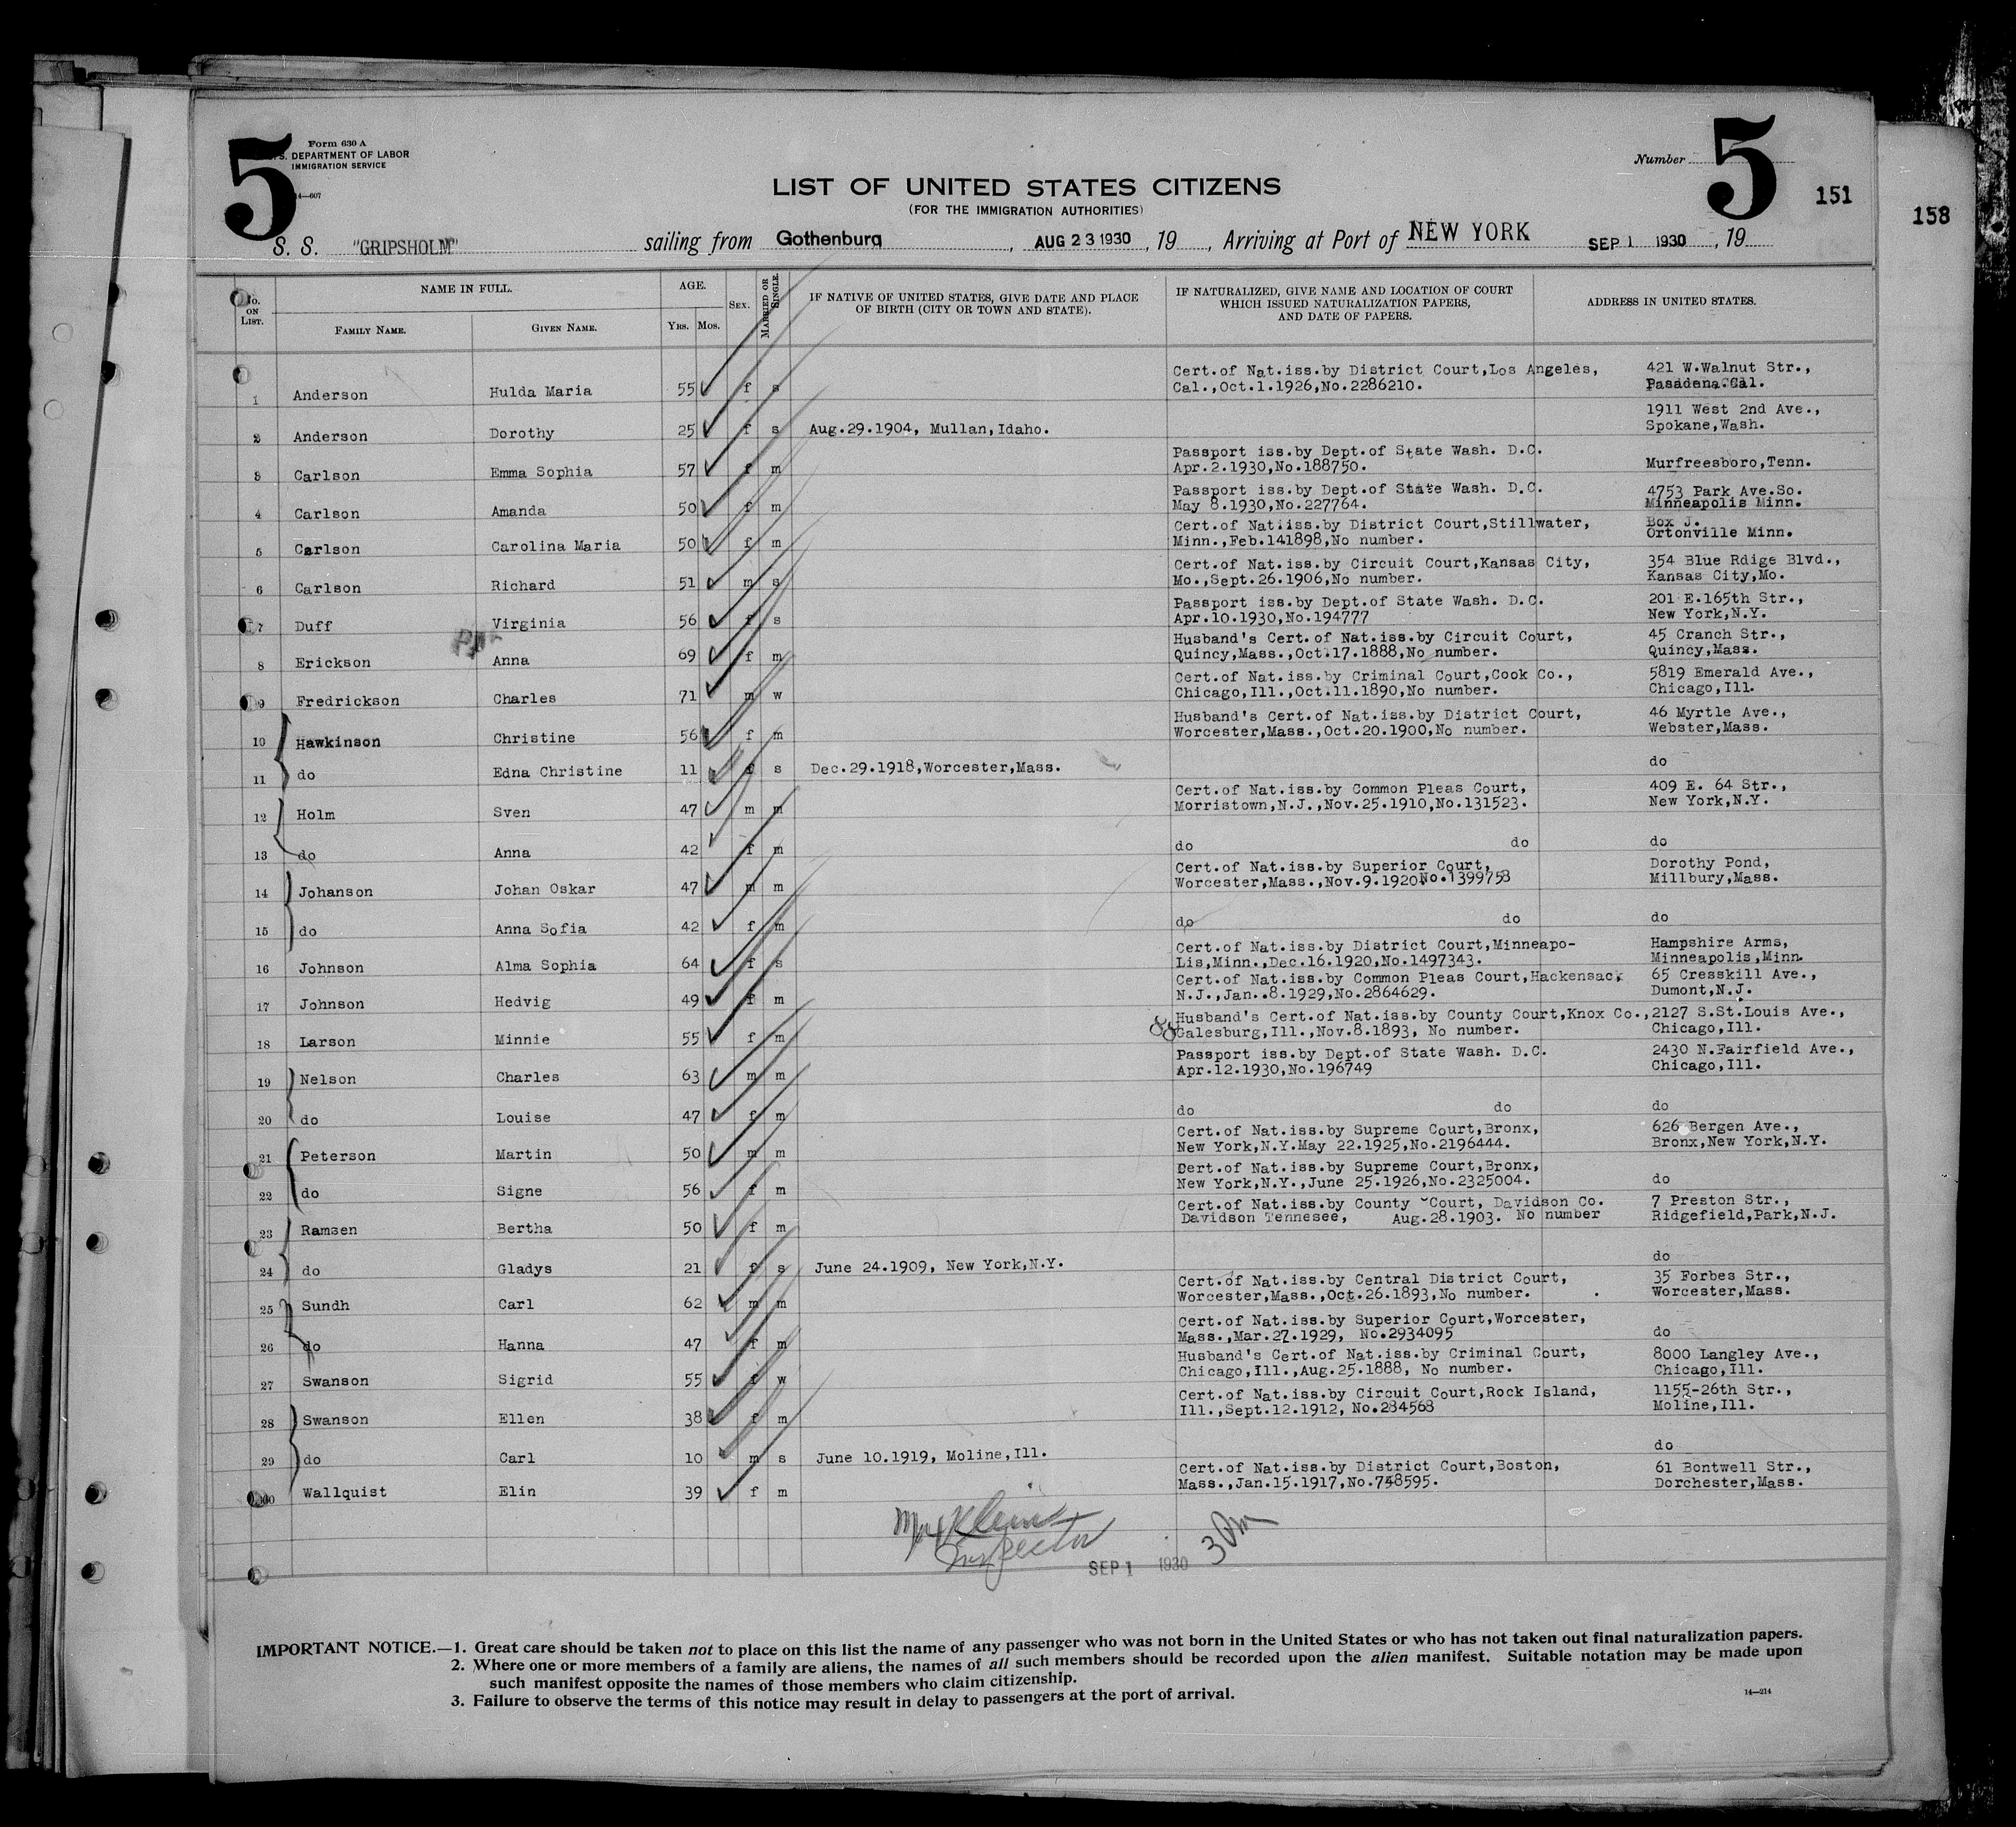 5
Form 630 A
U.S. DEPARTMENT OF LABOR
IMMIGRATION SERVICE
14—607
Number
5
151
158
LIST OF UNITED STATES CITIZENS
(FOR THE IMMIGRATION AUTHORITIES)
S. S. "GRIPSHOLM" sailing from Gothenburg, AUG 23 1930, 19, Arriving at Port of NEW YORK SEP 1 1930, 19
No. ON LIST. NAME IN FULL. AGE. SEX. MARRIED OR SINGLE. IF NATIVE OF UNITED STATES, GIVE DATE AND PLACE OF BIRTH (CITY OR TOWN AND STATE). IF NATURALIZED, GIVE NAME AND LOCATION OF COURT WHICH ISSUED NATURALIZATION PAPERS, AND DATE OF PAPERS. ADDRESS IN UNITED STATES.
FAMILY NAME. GIVEN NAME. YRS. MOS.
Cert.of Nat.iss.by District Court,Los Angeles, 421 W.Walnut Str.,
1 Anderson Hulda Maria 55 f s Cal.,Oct.1.1926,No.2286210. Pasadena.Cal.
1911 West 2nd Ave.,
2 Anderson Dorothy 25 f s Aug.29.1904, Mullan,Idaho. Spokane,Wash.
Passport iss.by Dept.of State Wash. D.C.
3 Carlson Emma Sophia 57 f m Apr.2.1930,No.188750. Murfreesboro,Tenn.
Passport iss.by Dept.of State Wash. D.C. 4753 Park Ave.So.
4 Carlson Amanda 50 f m May 8.1930,No.227764. Minneapolis Minn.
Cert.of Nat.iss.by District Court,Stillwater, Box J.
5 Carlson Carolina Maria 50 f m Minn.,Feb.141898,No number. Ortonville Minn.
Cert.of Nat.iss.by Circuit Court,Kansas City, 354 Blue Rdige Blvd.,
6 Carlson Richard 51 m s Mo.,Sept.26.1906,No number. Kansas City,Mo.
Passport iss.by Dept.of State Wash. D.C. 201 E.165th Str.,
7 Duff Virginia 56 f s Apr.10.1930,No.194777 New York,N.Y.
Husband's Cert.of Nat.iss.by Circuit Court, 45 Cranch Str.,
8 Erickson Anna 69 f m Quincy,Mass.,Oct.17.1888,No number. Quincy,Mass.
Cert.of Nat.iss.by Criminal Court,Cook Co., 5819 Emerald Ave.,
9 Fredrickson Charles 71 m w Chicago,Ill.,Oct.11.1890,No number. Chicago,Ill.
Husband's Cert.of Nat.iss.by District Court, 46 Myrtle Ave.,
10 Hawkinson Christine 56 f m Worcester,Mass.,Oct.20.1900,No number. Webster,Mass.
11 do Edna Christine 11 f s Dec.29.1918,Worcester,Mass. do
Cert.of Nat.iss.by Common Pleas Court, 409 E. 64 Str.,
12 Holm Sven 47 m m Morristown,N.J.,Nov.25.1910,No.131523. New York,N.Y.
13 do Anna 42 f m do do do
Cert.of Nat.iss.by Superior Court, Dorothy Pond,
14 Johanson Johan Oskar 47 m m Worcester,Mass.,Nov.9.1920.No.1399758 Millbury,Mass.
15 do Anna Sofia 42 f m do do do
Cert.of Nat.iss.by District Court,Minneapo- Hampshire Arms,
16 Johnson Alma Sophia 64 f s Lis,Minn.,Dec.16.1920,No.1497343. Minneapolis,Minn.
Cert.of Nat.iss.by Common Pleas Court,Hackensack 65 Cresskill Ave.,
17 Johnson Hedvig 49 f m N.J.,Jan..8.1929,No.2864629. Dumont,N.J.
Husband's Cert.of Nat.iss.by County Court,Knox Co., 2127 S.St.Louis Ave.,
18 Larson Minnie 55 f m Galesburg,Ill.,Nov.8.1893, No number. Chicago,Ill.
Passport iss.by Dept.of State Wash. D.C. 2430 N.Fairfield Ave.,
19 Nelson Charles 63 m m Apr.12.1930,No.196749 Chicago,Ill.
20 do Louise 47 f m do do do
Cert.of Nat.iss.by Supreme Court,Bronx, 626 Bergen Ave.,
21 Peterson Martin 50 m m New York,N.Y.May 22.1925,No.2196444. Bronx,New York,N.Y.
Cert.of Nat.iss.by Supreme Court,Bronx,
22 do Signe 56 f m New York,N.Y.,June 25.1926,No.2325004. do
Cert.of Nat.iss.by County Court, Davidson Co. 7 Preston Str.,
23 Ramsen Bertha 50 f m Davidson Tennesee, Aug.28.1903. No number Ridgefield,Park,N.J.
24 do Gladys 21 f s June 24.1909, New York,N.Y. do
Cert.of Nat.iss.by Central District Court, 35 Forbes Str.,
25 Sundh Carl 62 m m Worcester,Mass.,Oct.26.1893,No number. Worcester,Mass.
Cert.of Nat.iss.by Superior Court,Worcester,
26 do Hanna 47 f m Mass.,Mar.27.1929, No.2934095 do
Husband's Cert.of Nat.iss.by Criminal Court, 8000 Langley Ave.,
27 Swanson Sigrid 55 f w Chicago,Ill.,Aug.25.1888, No number. Chicago,Ill.
Cert.of Nat.iss.by Circuit Court,Rock Island, 1155-26th Str.,
28 Swanson Ellen 38 f m Ill.,Sept.12.1912, No.284568 Moline,Ill.
29 do Carl 10 m s June 10.1919, Moline,Ill. do
Cert.of Nat.iss.by District Court,Boston, 61 Bontwell Str.,
30 Wallquist Elin 39 f m Mass.,Jan.15.1917,No.748595. Dorchester,Mass.
Max Klein
Inspector
SEP 1 1930
IMPORTANT NOTICE.—1. Great care should be taken not to place on this list the name of any passenger who was not born in the United States or who has not taken out final naturalization papers.
2. Where one or more members of a family are aliens, the names of all such members should be recorded upon the alien manifest. Suitable notation may be made upon
such manifest opposite the names of those members who claim citizenship.
3. Failure to observe the terms of this notice may result in delay to passengers at the port of arrival.
14—214